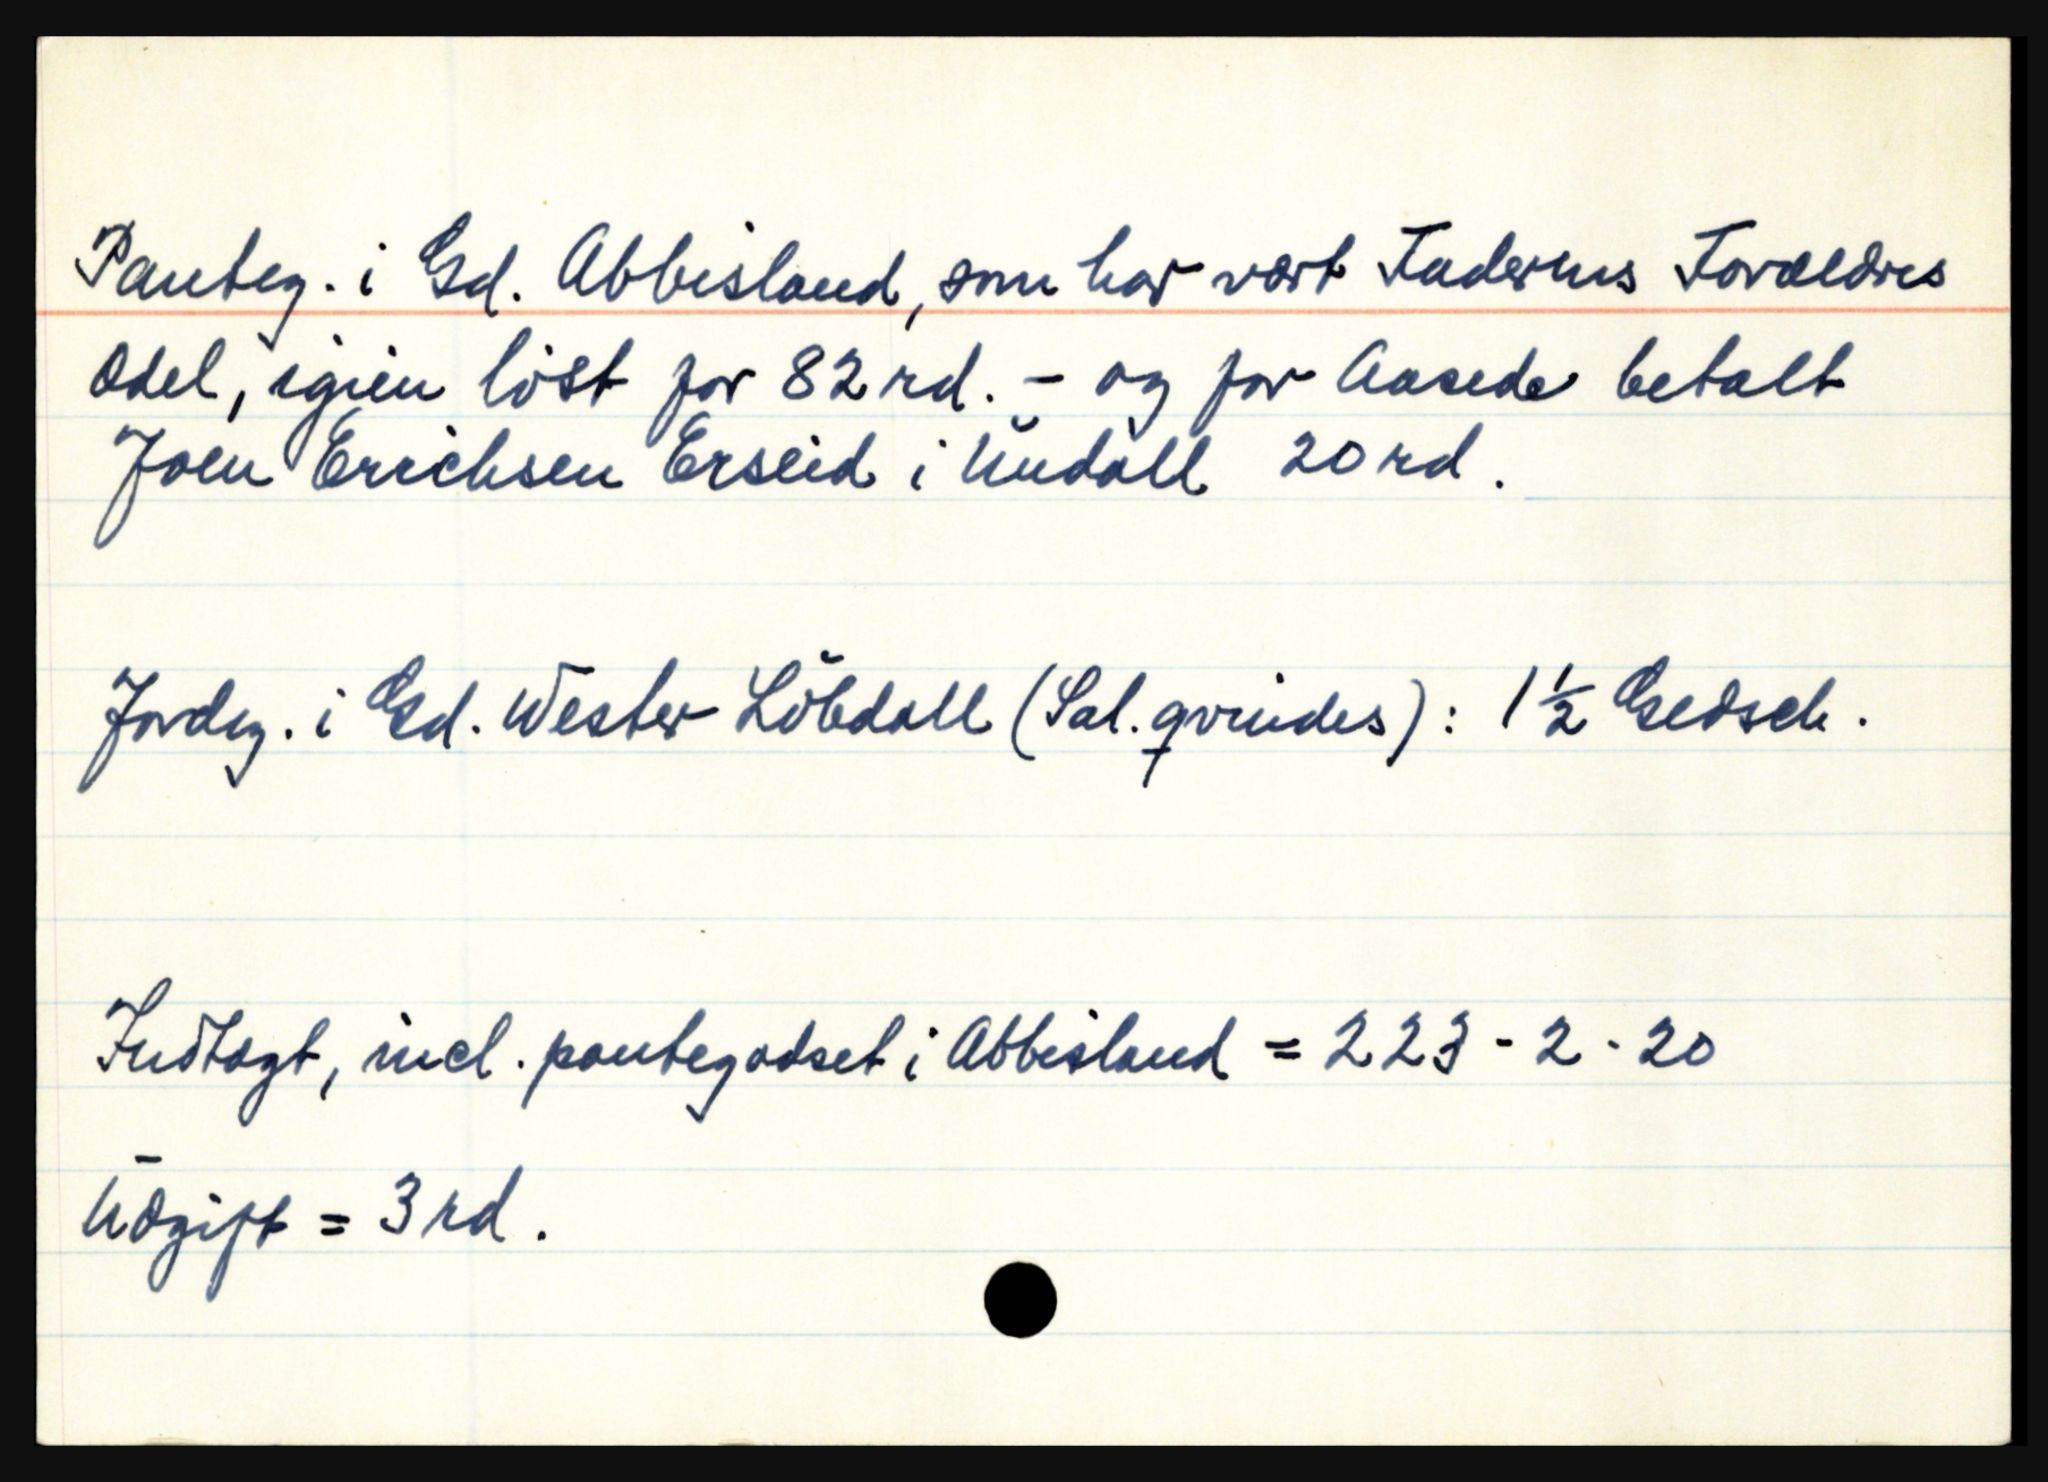 Panteg. i Gd. Abbisland, som har vært Faderens Forældres
Odel, igien løst for 82 rd. - og for Aasede betalt
Joen Erichsen Erseid i Undall 20 rd.
Jordeg. i Gd. Wester Löbdall (Sal. qvindes): 1 ½ Gedsch.
Indtegt, incl. pantegodset i Abbisland = 223 - 2 - 20
Udgift = 3 rd.